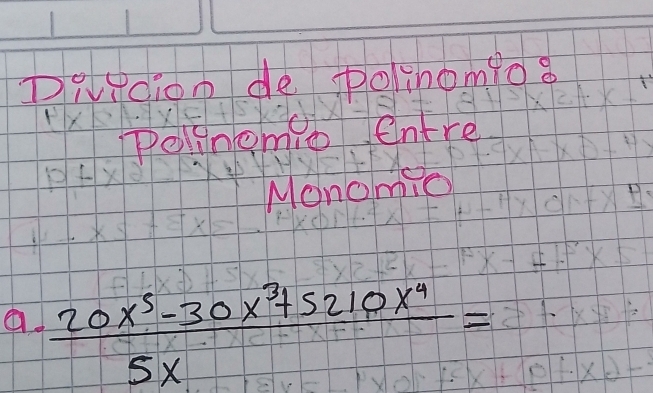 Divicion de polinomios
Polinomio Entre
Monomio
a. 20x⁵-30x³+5210x⁴ =
5x